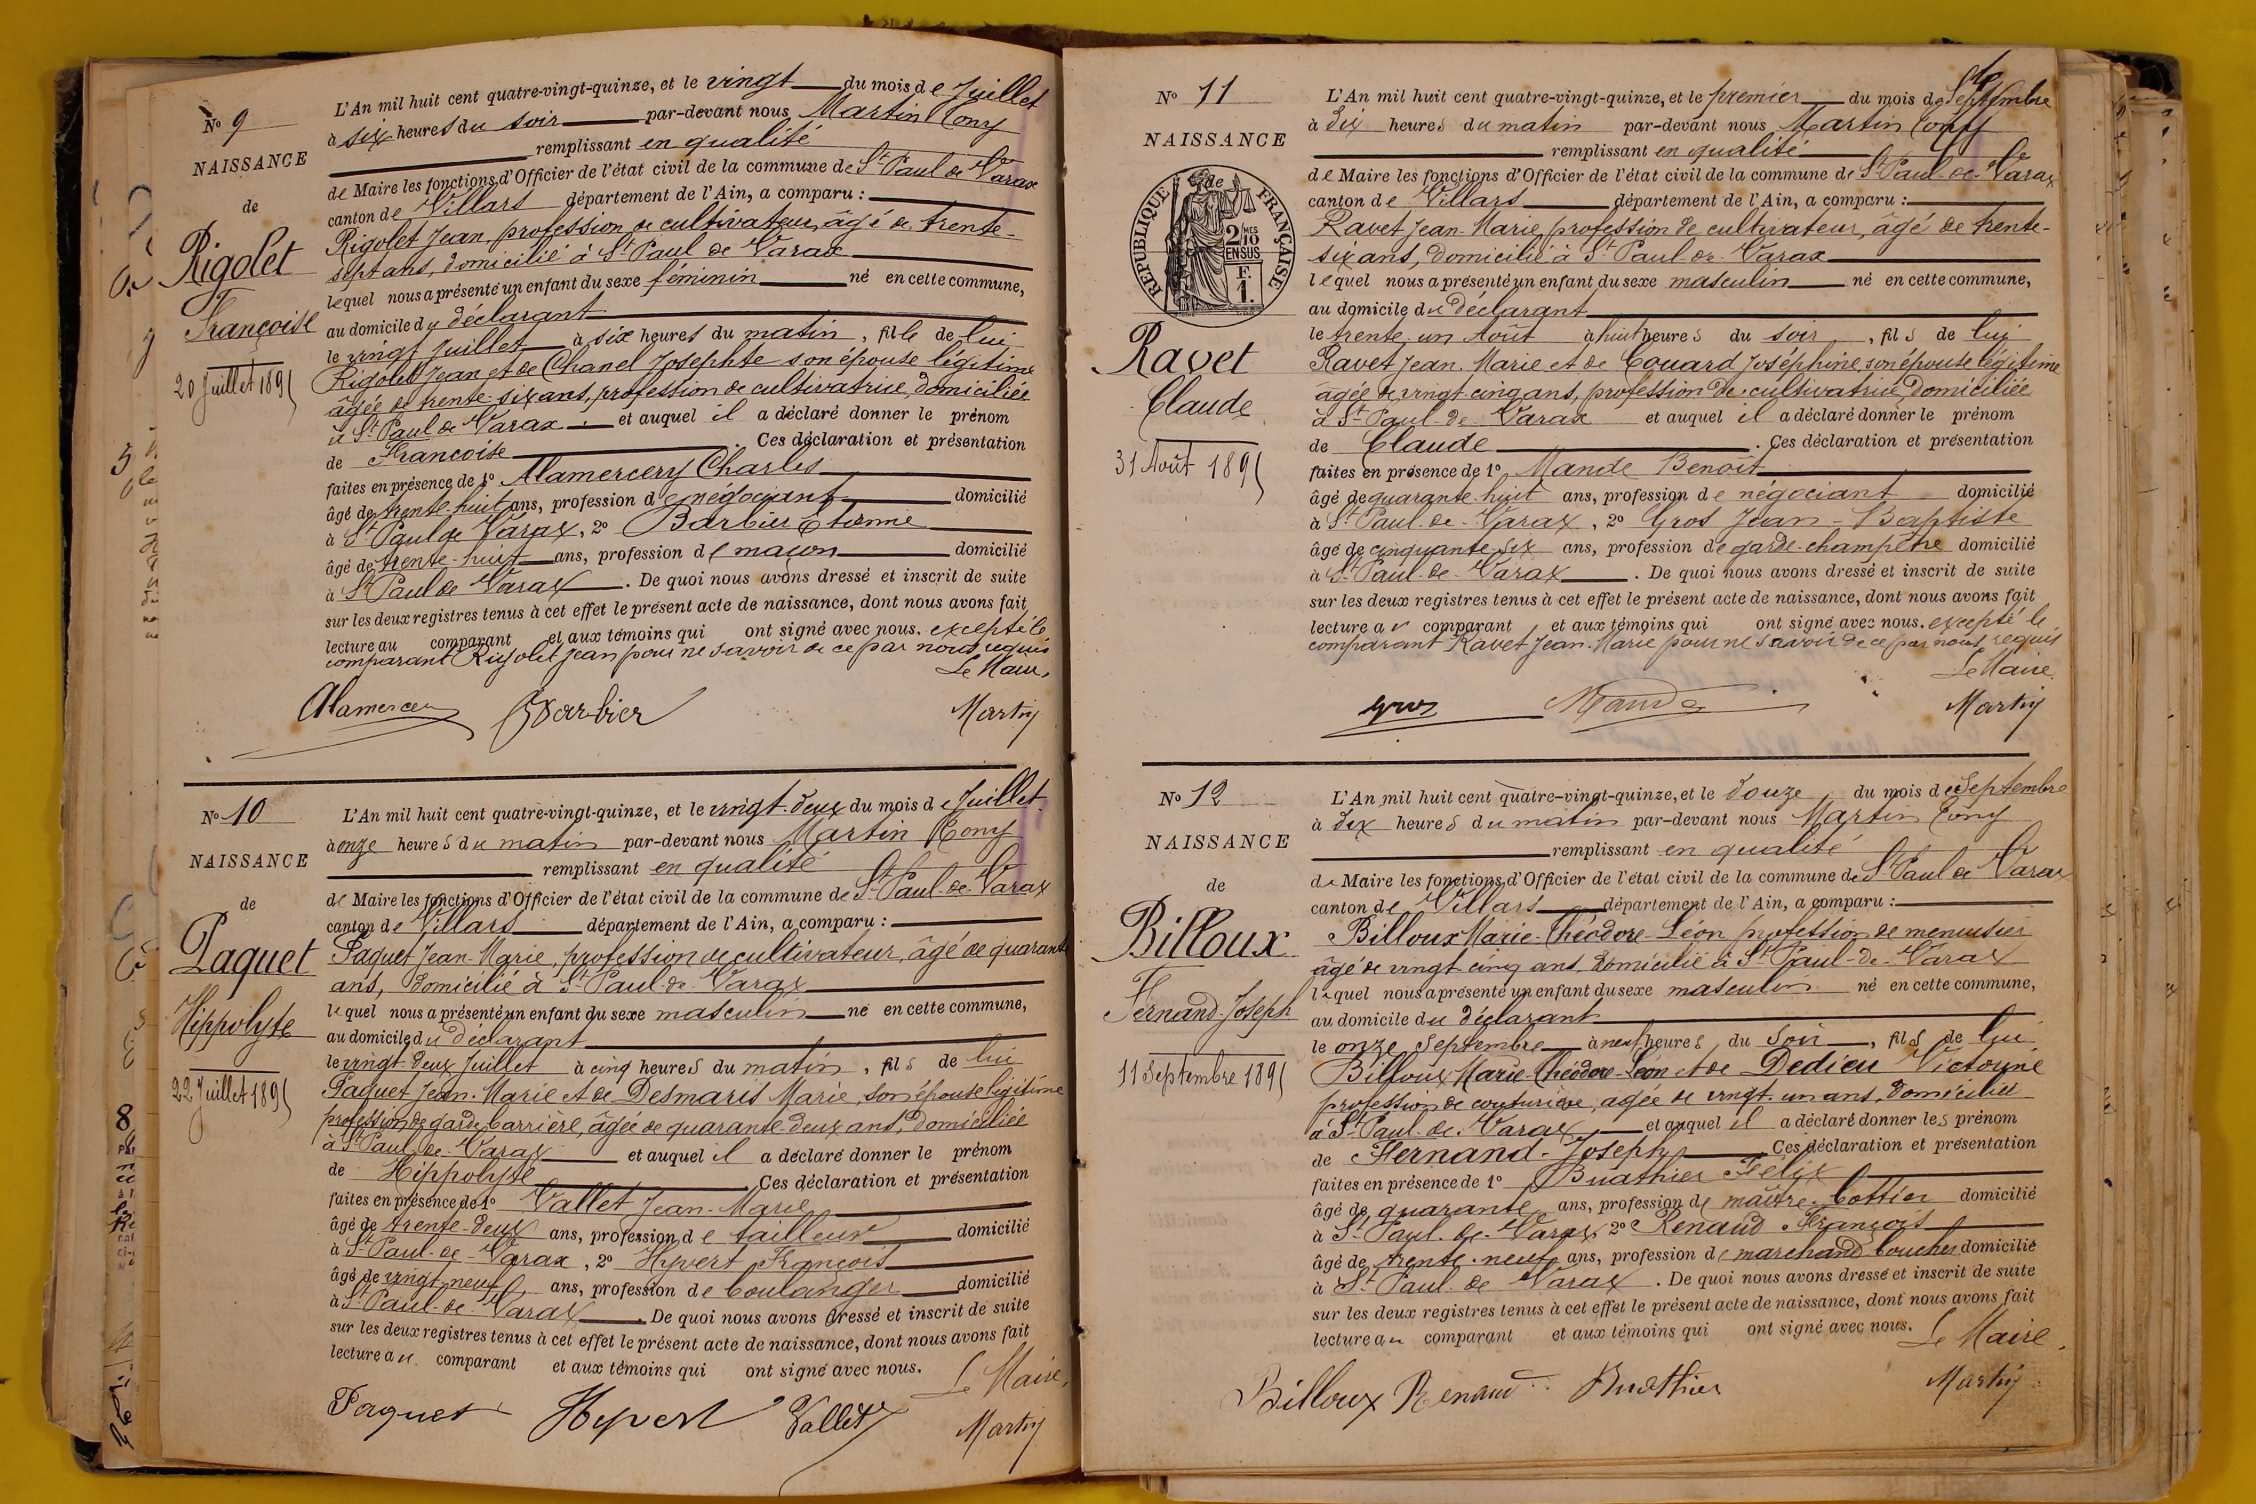 Nº 9
NAISSANCE
de
Rigolet
Françoise
20 Juillet 1895
L'An mil huit cent quatre-vingt-quinze, et le vingt du mois de Juillet
à six heures du soir par-devant nous Martin Tony
remplissant en qualité
de Maire les fonctions d'Officier de l'état civil de la commune de St Paul de Varax
canton de Villars département de l'Ain, a comparu :
Rigolet Jean, profession de cultivateur, âgé de trente-
sept ans, domicilié à St Paul de Varax
lequel nous a présenté un enfant du sexe féminin né en cette commune,
au domicile du déclarant
le vingt Juillet à six heures du matin, fille de lui
Rigolet Jean et de Chanel Josephte son épouse légitime
âgée de trente-six ans, profession de cultivatrice, domiciliée
à St Paul de Varax et auquel il a déclaré donner le prénom
de Françoise. Ces déclaration et présentation
faites en présence de 1º Alamercery Charles
âgé de trente-huit ans, profession de négociant domicilié
à St Paul de Varax, 2º Barbier Etienne
âgé de trente-huit ans, profession de maçon domicilié
à St Paul de Varax. De quoi nous avons dressé et inscrit de suite
sur les deux registres tenus à cet effet le présent acte de naissance, dont nous avons fait
lecture au comparant et aux témoins qui ont signé avec nous. excepté le
comparant Rigolet Jean pour ne savoir de ce par nous requis
Le Maire,
Alamercery Barbier Martin
Nº 10
NAISSANCE
de
Paquet
Hippolyte
22 Juillet 1895
L'An mil huit cent quatre-vingt-quinze, et le vingt-deux du mois de Juillet
à onze heures du matin par-devant nous Martin Tony
remplissant en qualité
de Maire les fonctions d'Officier de l'état civil de la commune de St Paul-de-Varax
canton de Villars département de l'Ain, a comparu :
Paquet Jean-Marie, profession de cultivateur, âgé de quarante
ans, domicilié à St Paul-de-Varax
lequel nous a présenté un enfant du sexe masculin né en cette commune,
au domicile du déclarant
le vingt-deux Juillet à cinq heures du matin, fils de lui
Paquet Jean-Marie et de Desmaris Marie, son épouse légitime
profession de garde barrière, âgée de quarante-deux ans, domiciliée
à St Paul-de-Varax et auquel il a déclaré donner le prénom
de Hippolyte Ces déclaration et présentation
faites en présence de 1º Vallet Jean-Marie
âgé de trente-deux ans, profession de tailleur domicilié
à St Paul-de-Varax, 2º Hyvert François
âgé de vingt neuf ans, profession de boulanger domicilié
à St Paul-de-Varax. De quoi nous avons dressé et inscrit de suite
sur les deux registres tenus à cet effet le présent acte de naissance, dont nous avons fait
lecture au comparant et aux témoins qui ont signé avec nous.
Le Maire,
Paquet Hyvert Vallet Martin
Nº 11
NAISSANCE
de
RÉPUBLIQUE FRANÇAISE
2/10 MES
EN SUS
F.
1.
Ravet
Claude
31 Août 1895
L'An mil huit cent quatre-vingt-quinze, et le premier du mois de Septembre
à dix heures du matin par-devant nous Martin Tony
remplissant en qualité
de Maire les fonctions d'Officier de l'état civil de la commune de St Paul-de-Varax
canton de Villars département de l'Ain, a comparu :
Ravet Jean-Marie, profession de cultivateur, âgé de trente-
six ans, domicilié à St Paul-de-Varax
lequel nous a présenté un enfant du sexe masculin né en cette commune,
au domicile du déclarant
le trente un Août à huit heures du soir, fils de lui
Ravet Jean-Marie et de Couard Joséphine, son épouse légitime
âgée de vingt cinq ans, profession de cultivatrice, domiciliée
à St Paul-de-Varax et auquel il a déclaré donner le prénom
de Claude. Ces déclaration et présentation
faites en présence de 1º Mande Benoit
âgé de quarante-huit ans, profession de négociant domicilié
à St Paul-de-Varax, 2º Gros Jean-Baptiste
âgé de cinquante-six ans, profession de garde-champêtre domicilié
à St Paul-de-Varax. De quoi nous avons dressé et inscrit de suite
sur les deux registres tenus à cet effet le présent acte de naissance, dont nous avons fait
lecture au comparant et aux témoins qui ont signé avec nous. excepté le
comparant Ravet Jean-Marie pour ne savoir de ce par nous requis
Le Maire,
Gros Mande Martin
Nº 12
NAISSANCE
de
Billoux
Fernand-Joseph
11 Septembre 1895
L'An mil huit cent quatre-vingt-quinze, et le douze du mois de Septembre
à dix heures du matin par-devant nous Martin Tony
remplissant en qualité
de Maire les fonctions d'Officier de l'état civil de la commune de St Paul de Varax
canton de Villars département de l'Ain, a comparu :
Billoux Marie-Théodore-Léon profession de menuisier
âgé de vingt cinq ans, domicilié à St Paul-de-Varax
lequel nous a présenté un enfant du sexe masculin né en cette commune,
au domicile du déclarant
le onze Septembre à neuf heures du soir, fils de lui
Billoux Marie-Théodore-Léon et de Dedieu Victorine
profession de couturière, âgée de vingt-un ans, domiciliée
à St Paul-de-Varax et auquel il a déclaré donner les prénom
de Fernand-Joseph Ces déclaration et présentation
faites en présence de 1º Buathier Félix
âgé de quarante ans, profession de maître-bottier domicilié
à St Paul-de-Varax 2º Renaud François
âgé de trente-neuf ans, profession de marchand boucher domicilié
à St Paul de Varax. De quoi nous avons dressé et inscrit de suite
sur les deux registres tenus à cet effet le présent acte de naissance, dont nous avons fait
lecture au comparant et aux témoins qui ont signé avec nous.
Le Maire,
Billoux Renaud Buathier Martin